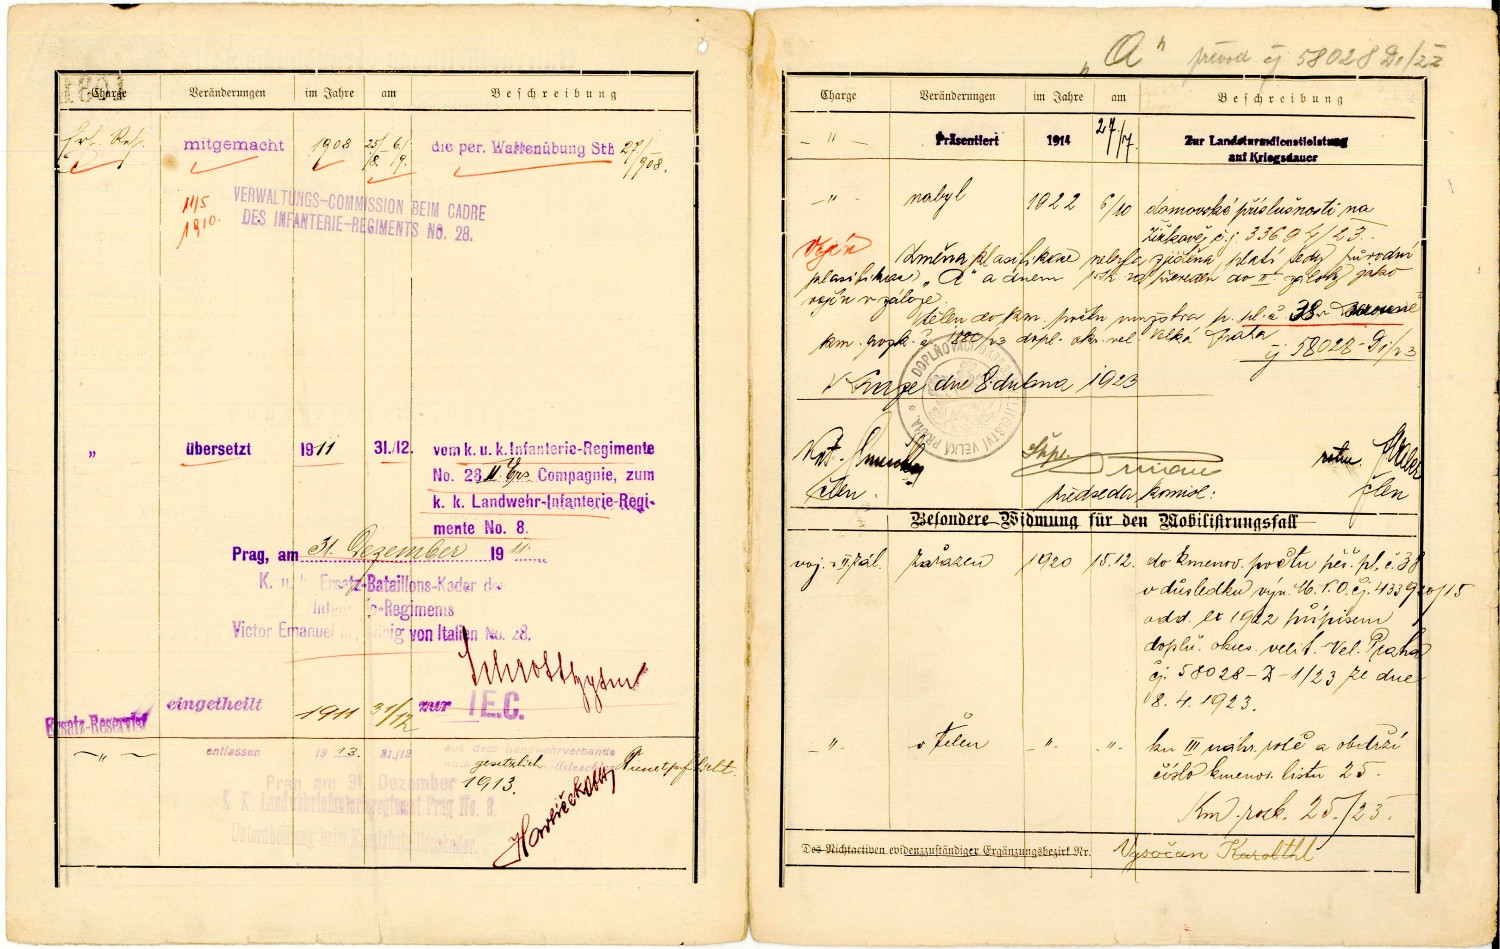 1891
Charge Veränderungen im Jahre am Beschreibung
Ers. Res. mitgemacht 1908 25/8 6/9. die per. Waffenübung Stb 27/908.
11/5
1910.
VERWALTUNGS-COMMISSION BEIM CADRE
DES INFANTERIE-REGIMENTS No. 28.
" übersetzt 1911 31./12. vom k. u. k. Infanterie-Regimente
No. 28 Compagnie, zum
k. k. Landwehr-Infanterie-Regi-
mente No. 8.
Prag, am 31. Dezember 1911.
K. u. k. Ersatz-Bataillons-Kader des
Infanterie-Regiments
Victor Emanuel König von Italien No. 28.
eingetheilt 1911 31/12 zur IE.C.
Ersatz-Reservist
— " — entlassen 1913. 31./12 aus dem Landwehrverbande
nach gesetzlich
1913.
Prag am 31. Dezember
K. K. Landwehrinfanterieregiment Prag No. 8.
"A" převod čj 58028 D1/23
Charge Veränderungen im Jahre am Beschreibung
— " — Präsentiert 1914 27./7. Zur Landsturmdienstleistung
auf Kriegsdauer
— " — nabyl 1922 6/10 domovské příslušnosti na
Žižkově č.j. 33694/23.
Vojín Změna klasifikace nebyla zjištěna platí tedy původní
klasifikace "A" a dnem přeřaděn do II. zálohy jako
vojín v záloze.
Včlen do km. počtu mužstva p. pl. č. 38
km. popk. č. 1880/23 dopl. okr. vel. Velká Praha
čj 58028-D1/23
V Praze dne 8. dubna 1923
DOPLŇOVACÍ OKRESNÍ VELITELSTVÍ VELKÁ PRAHA
Škpt.
člen. předseda komise: člen
Besondere Widmung für den Mobilisirungsfall
voj. v II. zál. zařazen 1920 15.12. do kmenov. počtu pěš. pl. č. 38
v důsledku výn. M.N.O. čj. 433920/15
odd. ex 1922 přípisem
doplň. okres. velit. Vel. Praha
čj. 58028-D-1/23 ze dne
8. 4. 1923.
— " — včelen — " — — " — ku III náhr. rotě a obdrží
číslo kmenov. listu 25.
Km. posk. 25./23.
Des Nichtactiven evidenzzuständiger Ergänzungsbezirk Nr. Vysočan Karolthl